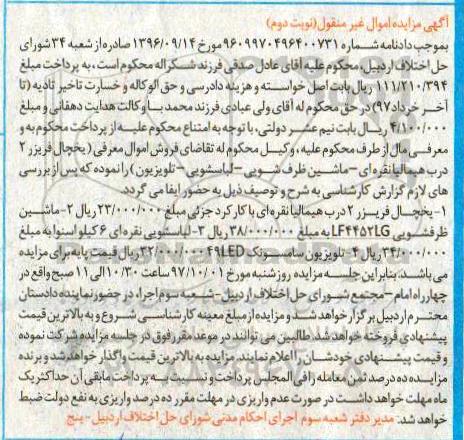 آگهی مزایده اموال غیر منقول(نوبت دوم)
بموجب دادنامه شماره ۹۶۰۹۹۷۰۴۹۶۴۰۰۷۳۱ مورخ ۱۳۹۶/۰۹/۱۴ صادره از شعبه ۳۴ شورای
حل اختلاف اردبیل، محکوم علیه آقای عادل صدقی فرزند شکراله محکوم است، به پرداخت مبلغ
۱۱۱/۲۱۰/۳۹۴ ریال بابت اصل خواسته و هزینه دادرسی و حق الوکاله و خسارت تاخیر تادیه (تا
آخر خرداد ۹۷) در حق محکوم له آقای ولی عبادی فرزند محمد بـا وکالت هدایت دهقانی و مبلغ
۴/۱۰۰/۰۰۰ ریـال بابت نیم عشـر دولتی، با توجه به امتناع محکوم علیـه از پرداخت محکوم به و
معرفـی مـال از طرف محکوم علیه ، وکیـل محکوم له تقاضای فروش اموال معرفی (یخچال فریزر ۲
درب هیمالیا نقره ای – ماشین ظرف شـویی – لباسشـویی – تلویزیون) را نموده که پس از بررسی
های لازم گزارش کارشناسی به شرح و توصیف ذیل به حضور ایفا می گردد.
۱- یخچـال فریـزر ۲ درب هیمالیا نقره ای با کار کرد جزئی مبلغ ۲۳/۰۰۰/۰۰۰ ریال ۲- ماشـین
ظرفشـویی LF۴۴۵۲LG به مبلغ ۳۸/۰۰۰/۰۰۰ ریال ۳- لباسشـویی نقره ای ۶ کیلو اسنوا به مبلغ
۳۴/۰۰۰/۰۰۰ ریال ۴- تلویزیون سامسـونک ۴۹LED ۳۲/۰۰۰/۰۰۰ ریال قیمت پایه برای مزایده
می باشـد. بنابراین جلسـه مزایده روز شنبه مورخ ۹۷/۱۰/۰۱ ساعت ۱۰/۳۰ الی ۱۱ صبح واقع در
چهارراه امام – مجتمع شـورای حل اختلاف اردبیل – شعبه سوم اجراء، در حضور نماینده دادستان
محتـرم اردبیل برگزار خواهد شـد و مزایده از مبلغ معینه کارشناسـی شـروع و به بالاترین قیمت
پیشنهادی فروخته خواهد شد. طالبین می توانند در موعد مقرر فوق در جلسه مزایده شرکت نموده
و قیمت پیشـنهادی خودشـان را اعلام نمایند. مزایده به بالاترین قیمت واگذار خواهد شد و برنده
مزایـده ده درصد ثمن معامله را فی المجلس پرداخت و نسـبت بـه پرداخت مابقی آن حداکثر یک
ماه مهلت خواهد داشـت در صورت عدم واریزی در مهلت مقرر ده درصد واریزی به نفع دولت ضبط
خواهد شد. مدیر دفتر شعبه سوم اجرای احکام مدنی شورای حل اختلاف اردبیل - پنج